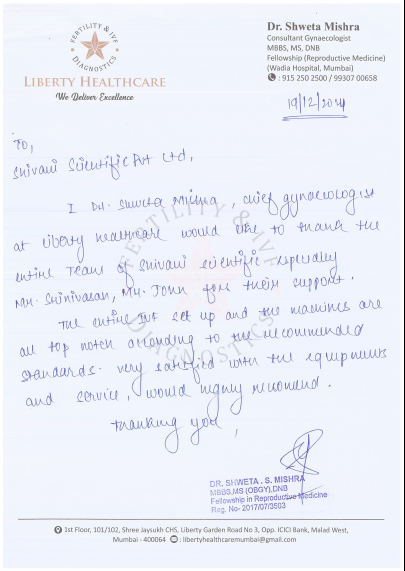 FERTILITY & IVF
DIAGNOSTICS
LIBERTY HEALTHCARE
We Deliver Excellence
Dr. Shweta Mishra
Consultant Gynaecologist
MBBS, MS, DNB
Fellowship (Reproductive Medicine)
(Wadia Hospital, Mumbai)
: 915 250 2500 / 99307 00658
19/12/2024
To,
Shivani Scientific Pvt Ltd,
I Dr. Shweta Mishra, chief gynaecologist
at liberty healthcare would like to thank the
entire Team of Shivani scientific especially
Mr. Shrinivasan, Mr. John for their support.
The entire IVF set up and the machines are
all top notch according to the recommended
standards. very satisfied with the equipments
and service, would highly recomend.
Thanking you,
FERTILITY & IVF
DIAGNOSTICS
DR. SHWETA . S. MISHRA
MBBS,MS (OBGY),DNB
Fellowship in Reproductive Medicine
Reg. No- 2017/07/3503
1st Floor, 101/102, Shree Jaysukh CHS, Liberty Garden Road No 3, Opp. ICICI Bank, Malad West,
Mumbai - 400064 : libertyhealthcaremumbai@gmail.com